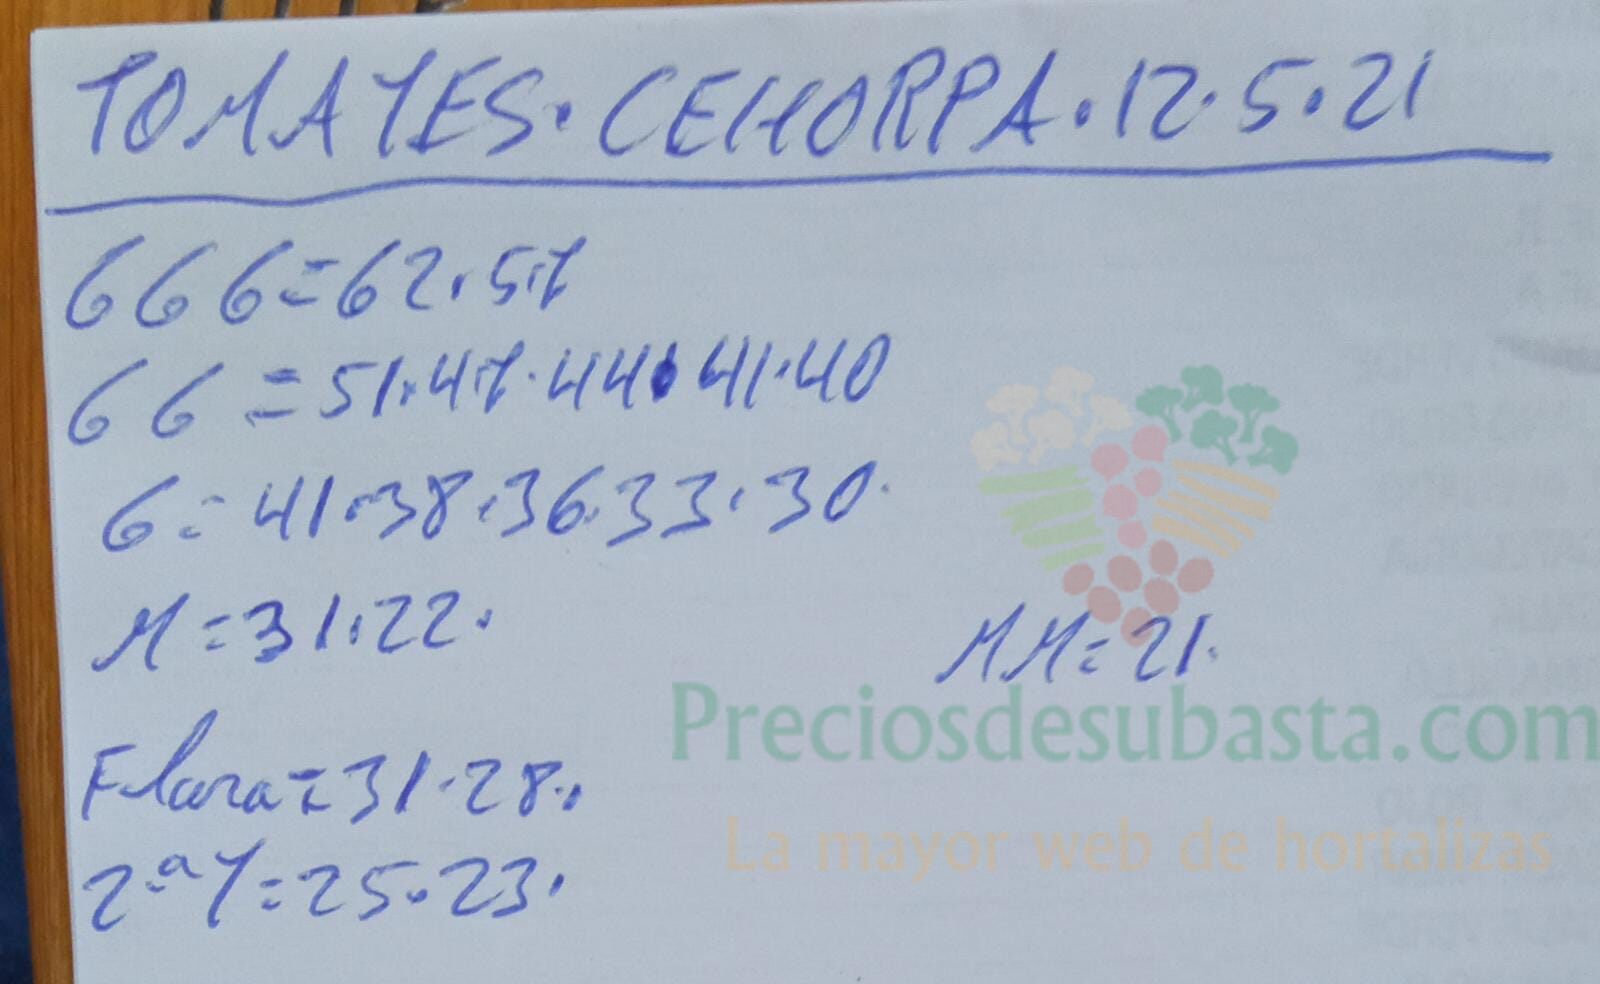 TOMATES. CEHORPA. 12.5.21
666=62.57
66=51.47.44.41.40
6=41.38.36.33.30.
M=31.22.
MM=21.
Flora=31.28.
2ªT=25.23.
Preciosdesubasta.com
La mayor web de hortalizas